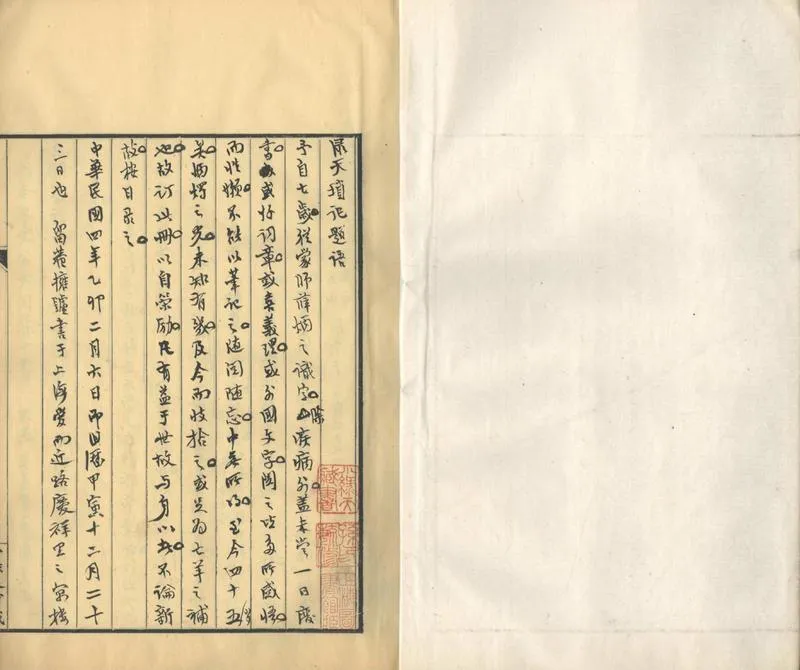 杲天隨記題語
予自七歲從蒙師薛炳之識字除疾病外蓋未嘗一日廢
書或好詞章或喜義理或外國文字閱之皆多所感悟
而性懶不能以筆記之隨閱隨忘中無所得至今四十五
炳燭之光未知有幾及今而收拾之或足為七年之補
也故訂此冊以自策勵凡有益于世故與身以此不論新
故按日录之
中華民國四年乙卯二月六日即旧曆甲寅十二月二十
三日也 留菴擁爐書于上海愛而近路慶祥里之寓樓